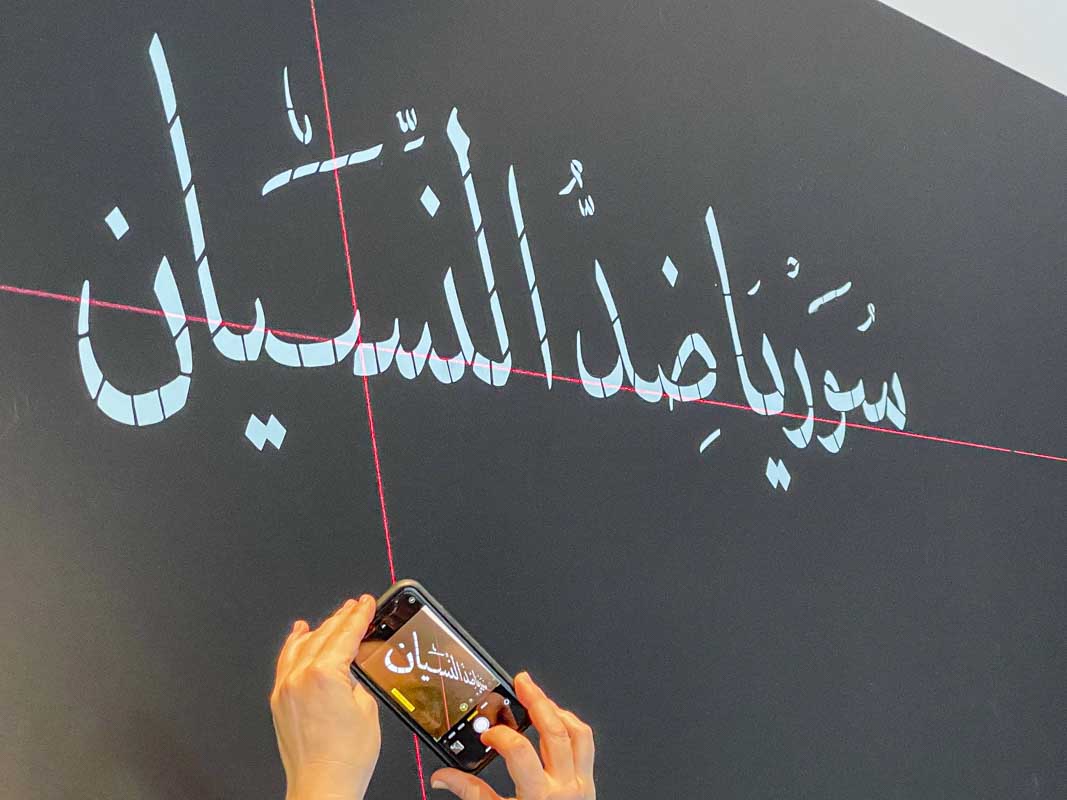 سُورِيَا ضِدُّ النِّسْيَان